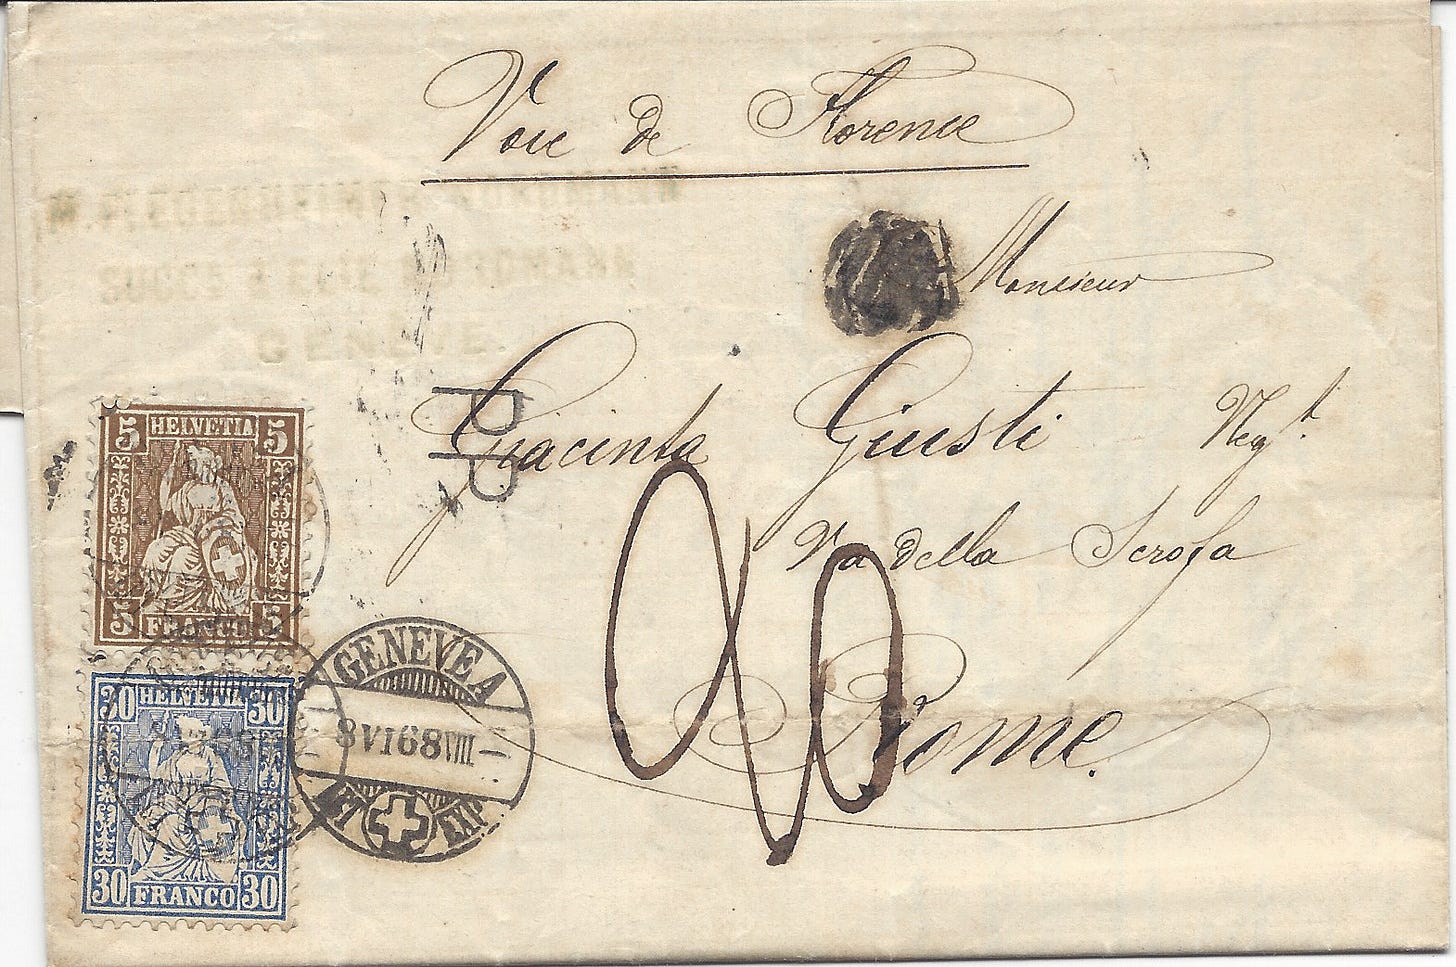 Voie de Florence
Monsieur
Giacinta Giusti Negt.
Via della Scrofa
Rome.
PD
5 HELVETIA 5
5 FRANCO 5
30 HELVETIA 30
30 FRANCO 30
GENEVE
8 VI 68 VIII
EXP